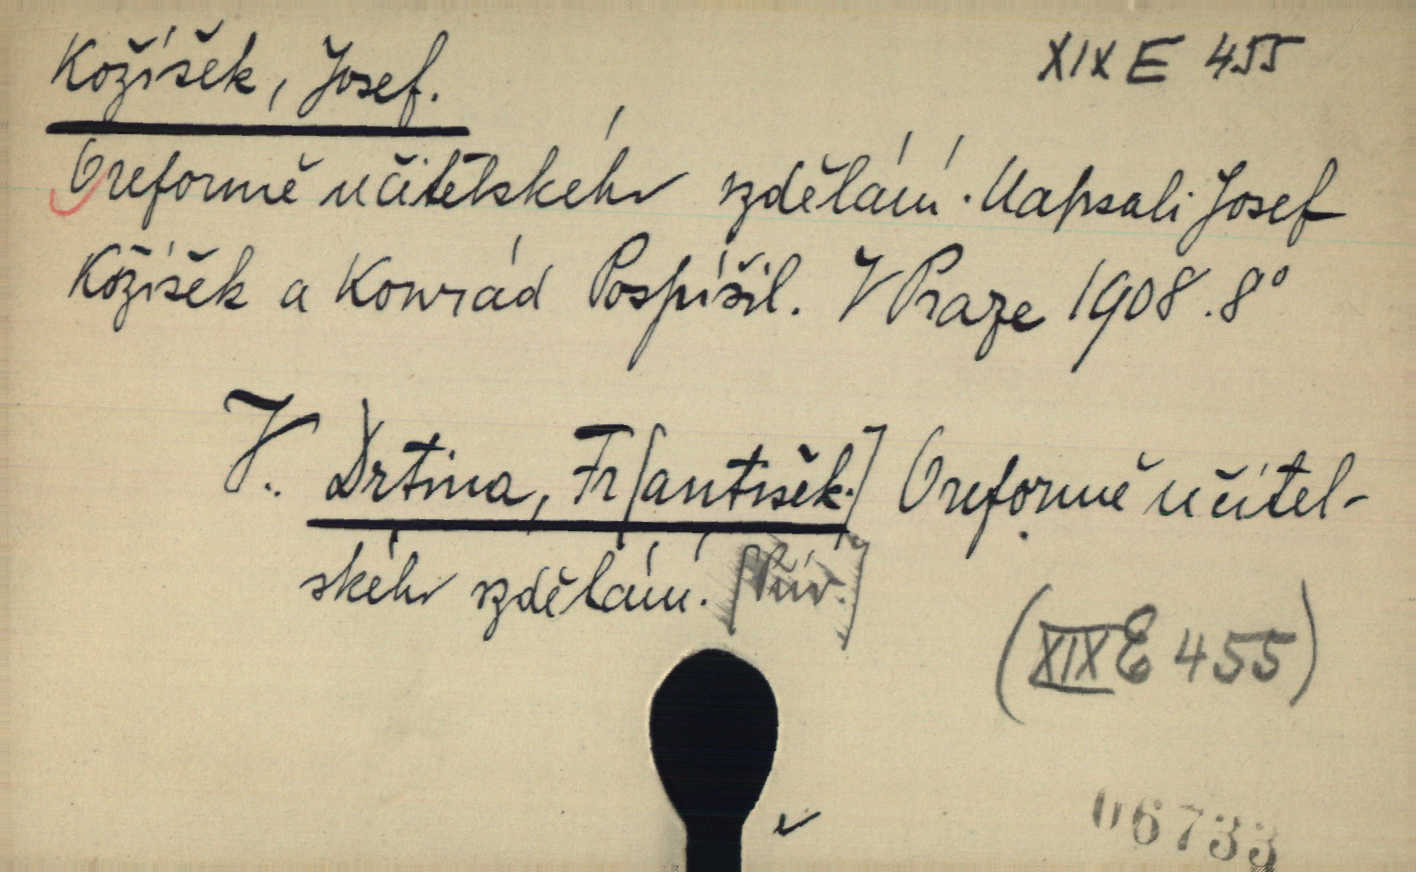 Kožíšek, Josef. XIX E 455
O reformě učitelského vzdělání. Napsali Josef
Kožíšek a Konrád Pospíšil. V Praze 1908. 8°
V. Drtina, Fr[antišek.] O reformě učitel-
ského vzdělání.
(XIX E 455)
06733